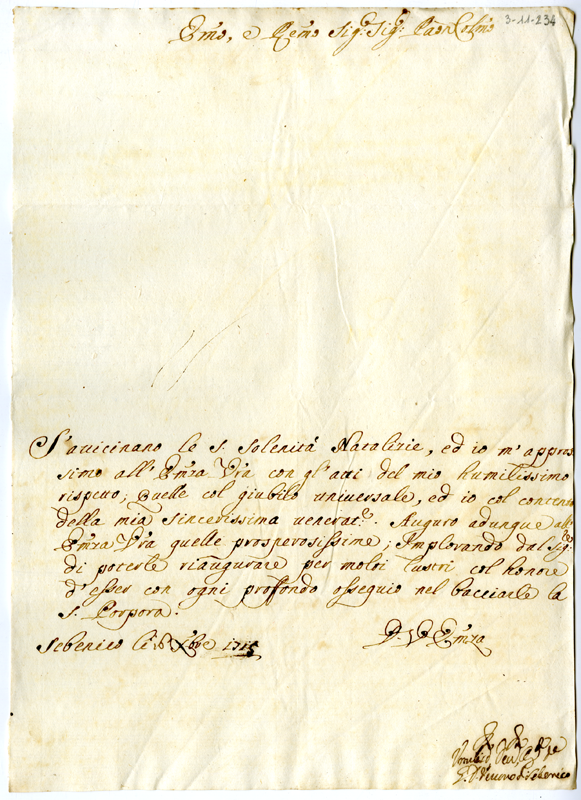 3-11-234
Emo, e Remo Sig.r Sig.r Pron Colmo
S'auicinano le S. Solenità Natalizie, ed io m'appros
simo all'Emza Vra con gl'atti del mio humilissimo
rispetto; Quelle col giubilo uniuersale, ed io col contento
della mia sincerissima venerac.e. Auguro adunque all'
Emza Vra quelle prosperosissime; Implorando dal Sig.re
di poterle riaugurare per molti lustri col honore
d'esser con ogni profondo ossequio nel bacciarle la
S. Porpora.
D. V. Emza
Sebenico li 18 Xbre 1715
Vmilis.o Deu.
Vescouo di Sebenico